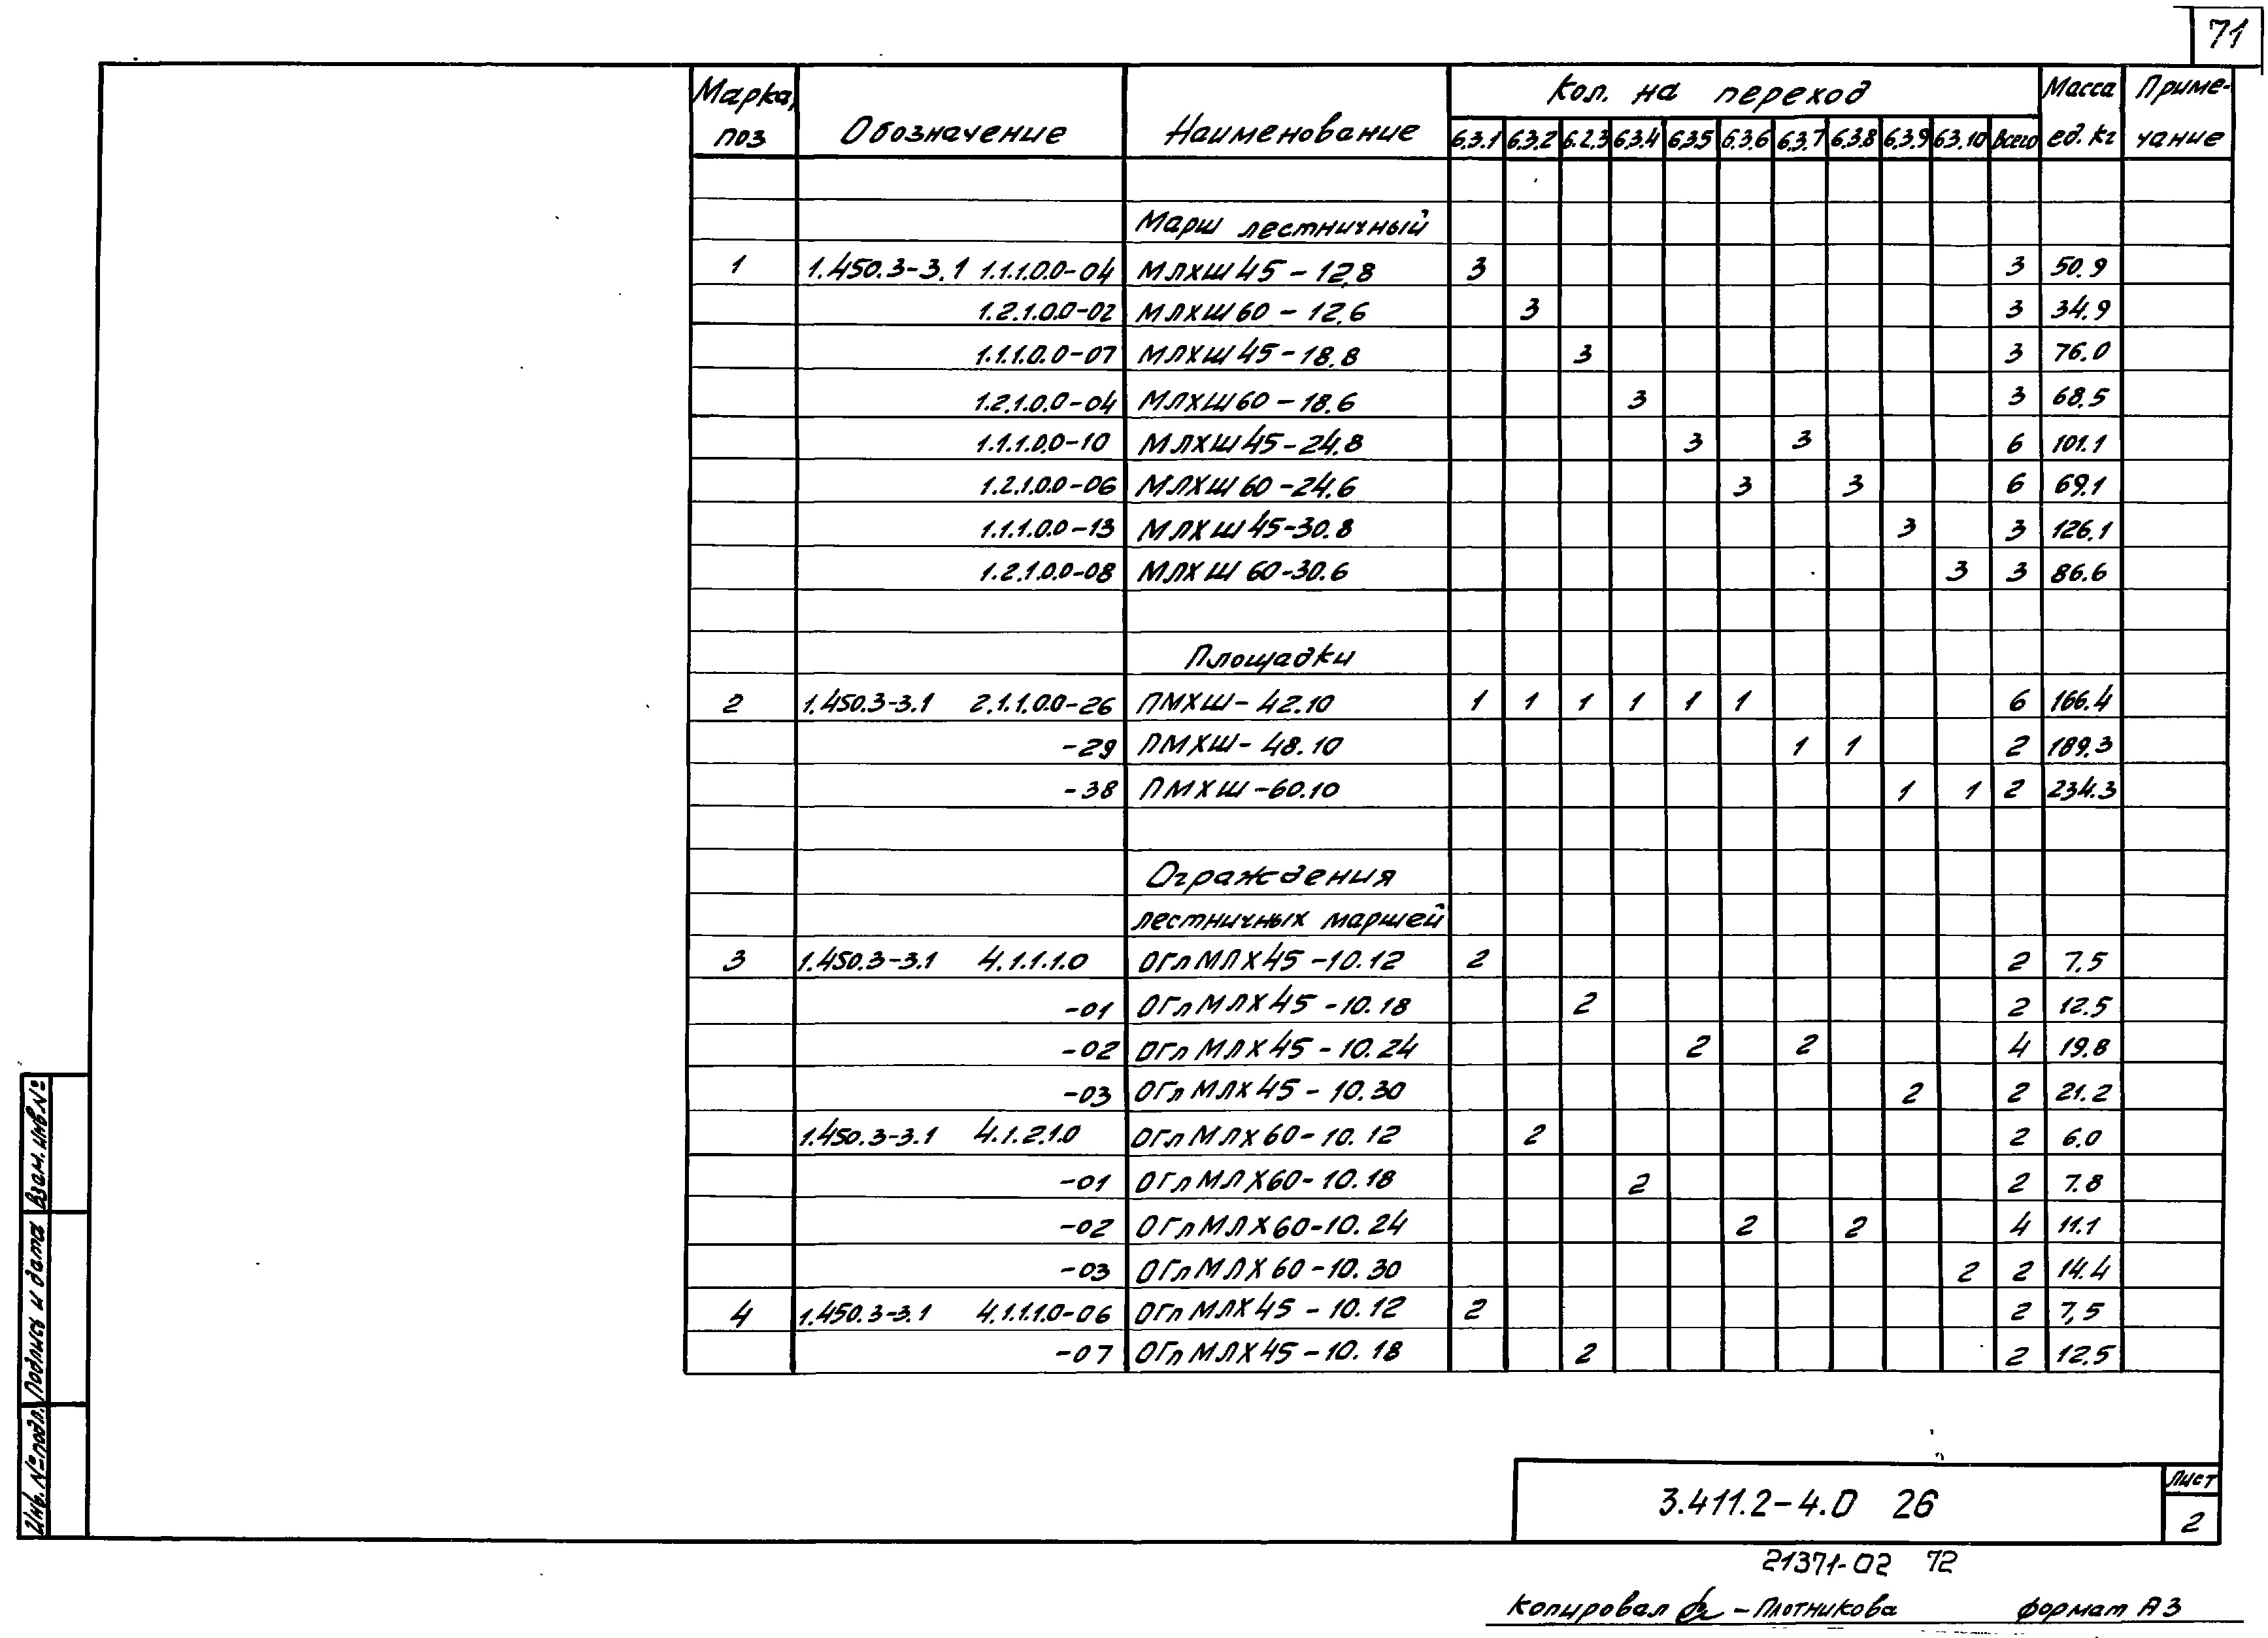 71
Марка, поз | Обозначение | Наименование | Кол. на переход | Масса ед. кг | Приме- чание
6.3.1 | 6.3.2 | 6.2.3 | 6.3.4 | 6.3.5 | 6.3.6 | 6.3.7 | 6.3.8 | 6.3.9 | 6.3.10 | всего
Марш лестничный
1 1.450.3-3.1 1.1.1.0.0-04 МЛХШ 45-12.8 3 3 50.9
1.2.1.0.0-02 МЛХШ 60-12.6 3 3 34.9
1.1.1.0.0-07 МЛХШ 45-18.8 3 3 76.0
1.2.1.0.0-04 МЛХШ 60-18.6 3 3 68.5
1.1.1.0.0-10 МЛХШ 45-24.8 3 3 6 101.1
1.2.1.0.0-06 МЛХШ 60-24.6 3 3 6 69.1
1.1.1.0.0-13 МЛХШ 45-30.8 3 3 126.1
1.2.1.0.0-08 МЛХШ 60-30.6 3 3 86.6
Площадки
2 1.450.3-3.1 2.1.1.0.0-26 ПМХШ-42.10 1 1 1 1 1 1 6 166.4
-29 ПМХШ-48.10 1 1 2 189.3
-38 ПМХШ-60.10 1 1 2 234.3
Ограждения
лестничных маршей
3 1.450.3-3.1 4.1.1.1.0 ОГлМЛХ45-10.12 2 2 7.5
-01 ОГлМЛХ45-10.18 2 2 12.5
-02 ОГлМЛХ45-10.24 2 2 4 19.8
-03 ОГлМЛХ45-10.30 2 2 21.2
1.450.3-3.1 4.1.2.1.0 ОГлМЛХ60-10.12 2 2 6.0
-01 ОГлМЛХ60-10.18 2 2 7.8
-02 ОГлМЛХ60-10.24 2 2 4 11.1
-03 ОГлМЛХ60-10.30 2 2 14.4
4 1.450.3-3.1 4.1.1.1.0-06 ОГпМЛХ45-10.12 2 2 7,5
-07 ОГпМЛХ45-10.18 2 2 12.5
Инв. № подл. Подпись и дата Взам. инв №
3.411.2-4.0 26
Лист
2
21371-02 72
Копировал – Плотникова формат А3